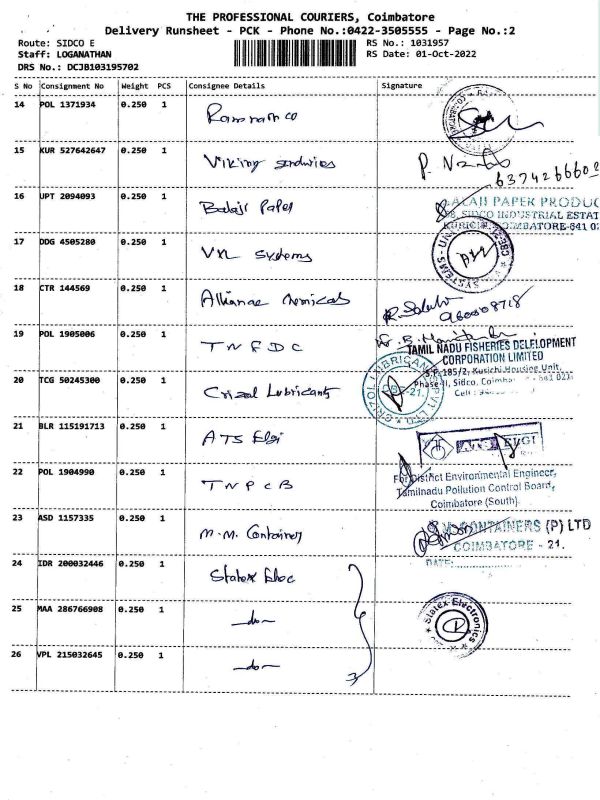 THE PROFESSIONAL COURIERS, Coimbatore
Delivery Runsheet - PCK - Phone No.:0422-3505555 - Page No.:2
Route: SIDCO E
RS No.: 1031957
Staff: LOGANATHAN
RS Date: 01-Oct-2022
DRS No.: DCJB103195702
S No Consignment No Weight PCS Consignee Details Signature
14 POL 1371934 0.250 1
15 KUR 527642647 0.250 1 Viking
P.
6374266602
16 UPT 2094093 0.250 1 Balaji Paper
BALAJI PAPER PRODUC
SIDCO INDUSTRIAL ESTAT
KURICHI, COIMBATORE-641 02
17 DDG 4505280 0.250 1 VN Systems
SYSTEMS
18 CTR 144569 0.250 1 Alliance chemicals
19 POL 1905006 0.250 1 TNFDC
TAMIL NADU FISHERIES DELELOPMENT
CORPORATION LIMITED
S.F. 185/2, Kurichi Housing Unit,
Phase-II, Sidco, Coimba
Cell :
20 TCG 50245300 0.250 1 Crizol Lubricants
CRIZOL LUBRICANTS PVT LTD
21 BLR 115191713 0.250 1 ATS Elgi
ELGI
22 POL 1904990 0.250 1 TNPCB
For District Environmental Engineer,
Tamilnadu Pollution Control Board,
Coimbatore (South).
23 ASD 1157335 0.250 1 M.M. Container
CONTAINERS (P) LTD
COIMBATORE - 21.
DATE:
24 IDR 200032446 0.250 1 Statex Elec
25 MAA 286766908 0.250 1 -do-
Statex Electronics
26 VPL 215032645 0.250 1 -do-